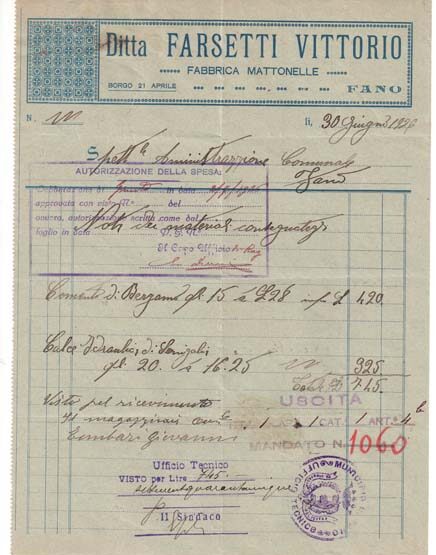 Ditta FARSETTI VITTORIO
FABBRICA MATTONELLE
BORGO 21 APRILE
FANO
N.
li, 30 Giugno 1936
Spett. Amministrazione Comunale
Fano
AUTORIZZAZIONE DELLA SPESA:
in data
approvata con visto N.° del
ovvero, autorizzazione scritta come dal
foglio in data
Nota dei materiali consegnatogli
Il Capo Ufficio
Cemento di Bergamo ql. 15 a £28 £ 420
Calce Idraulica di Senigallia
ql. 20 a 16.25 325
745
USCITA
Visto pel ricevimento
Il magazziniere
1 1 CAT. 1 ART. 4
Giovanni
MANDATO N. 1060
Ufficio Tecnico
VISTO per Lire 745
settecentoquarantacinque
Il Sindaco
MUNICIPIO
UFFICIO TECNICO